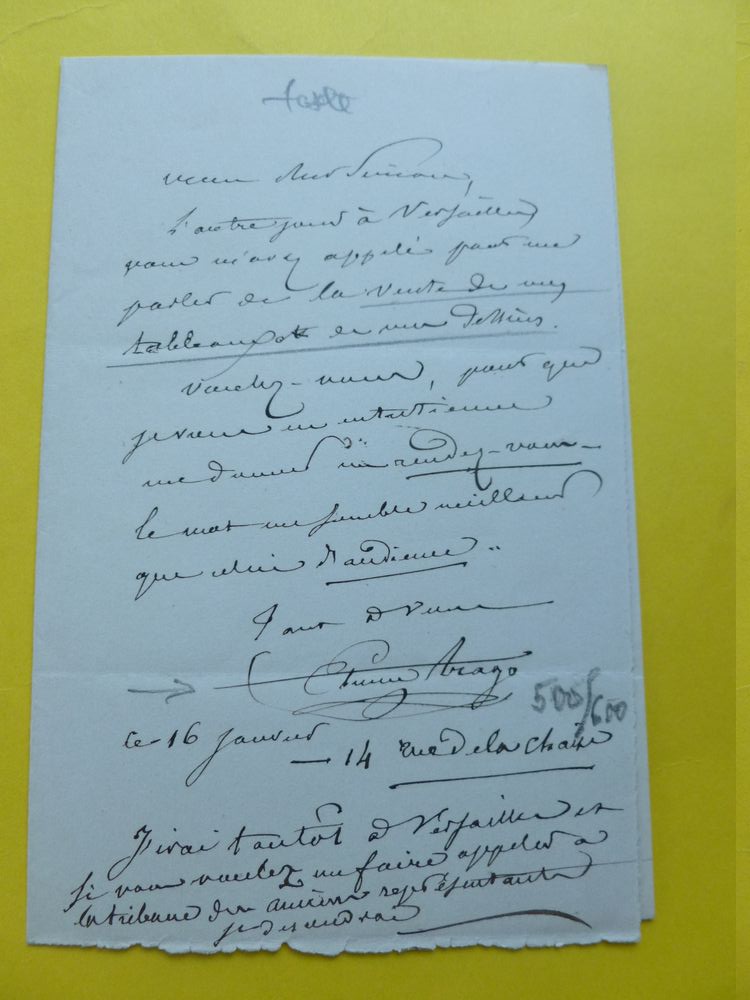 mon cher Simon,
L'autre jour à Versailles
vous m'avez appelé pour me
parler de la vente de mes
tableaux et de mes dessins.
Voulez-vous, pour que
je vous en entretienne
me donner un rendez-vous –
le mot me semble meilleur
que celui d'audience ..
Tout à vous
Etienne Arago
500/600
le 16 janvier
— 14 rue de la chaise
J'irai tantôt à Versailles et
si vous voulez me faire appeler à
la tribune des anciens représentants
je descendrai